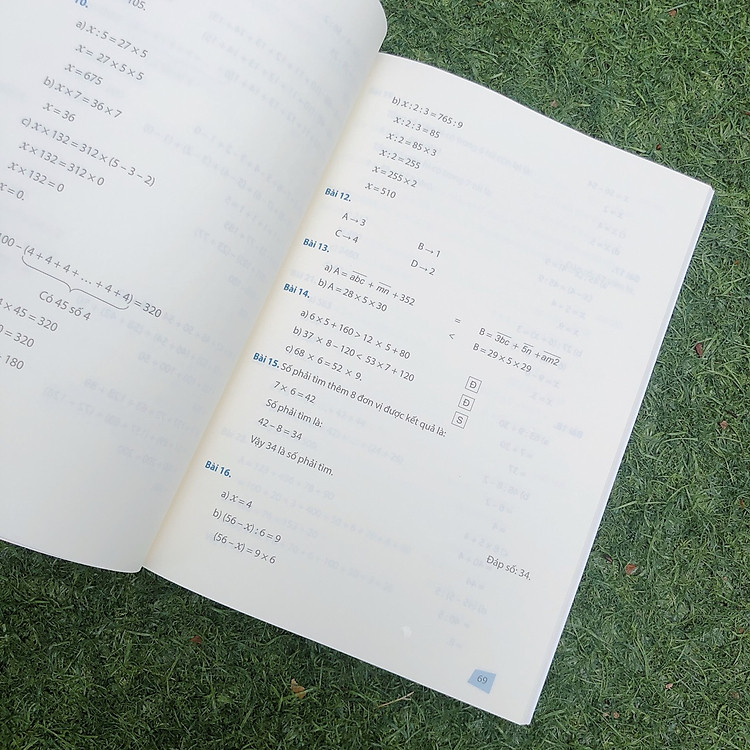 105.
10.
a) x : 5 = 27 × 5
x = 27 × 5 × 5
x = 675
b) x × 7 = 36 × 7
x = 36
c) x × 132 = 312 × (5 – 3 – 2)
x × 132 = 312 × 0
x × 132 = 0
x = 0.
100 – (4 + 4 + 4 + ... + 4 + 4) = 320
Có 45 số 4
4 × 45 = 320
0 = 320
= 180
b) x : 2 : 3 = 765 : 9
x : 2 : 3 = 85
x : 2 = 85 × 3
x : 2 = 255
x = 255 × 2
x = 510
Bài 12.
A → 3 B → 1
C → 4 D → 2
Bài 13.
a) A = abc + mn + 352 = B = 3bc + 5n + am2
b) A = 28 × 5 × 30 < B = 29 × 5 × 29
Bài 14.
a) 6 × 5 + 160 > 12 × 5 + 80 Đ
b) 37 × 8 – 120 < 53 × 7 + 120 Đ
c) 68 × 6 = 52 × 9. S
Bài 15. Số phải tìm thêm 8 đơn vị được kết quả là:
7 × 6 = 42
Số phải tìm là:
42 – 8 = 34
Vậy 34 là số phải tìm.
Đáp số: 34.
Bài 16.
a) x = 4
b) (56 – x) : 6 = 9
(56 – x) = 9 × 6
69